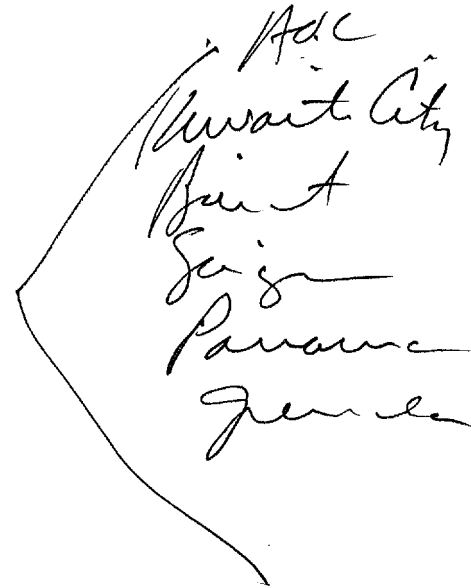 Kuwait City
Beirut
Saigon
Panama
Grenada